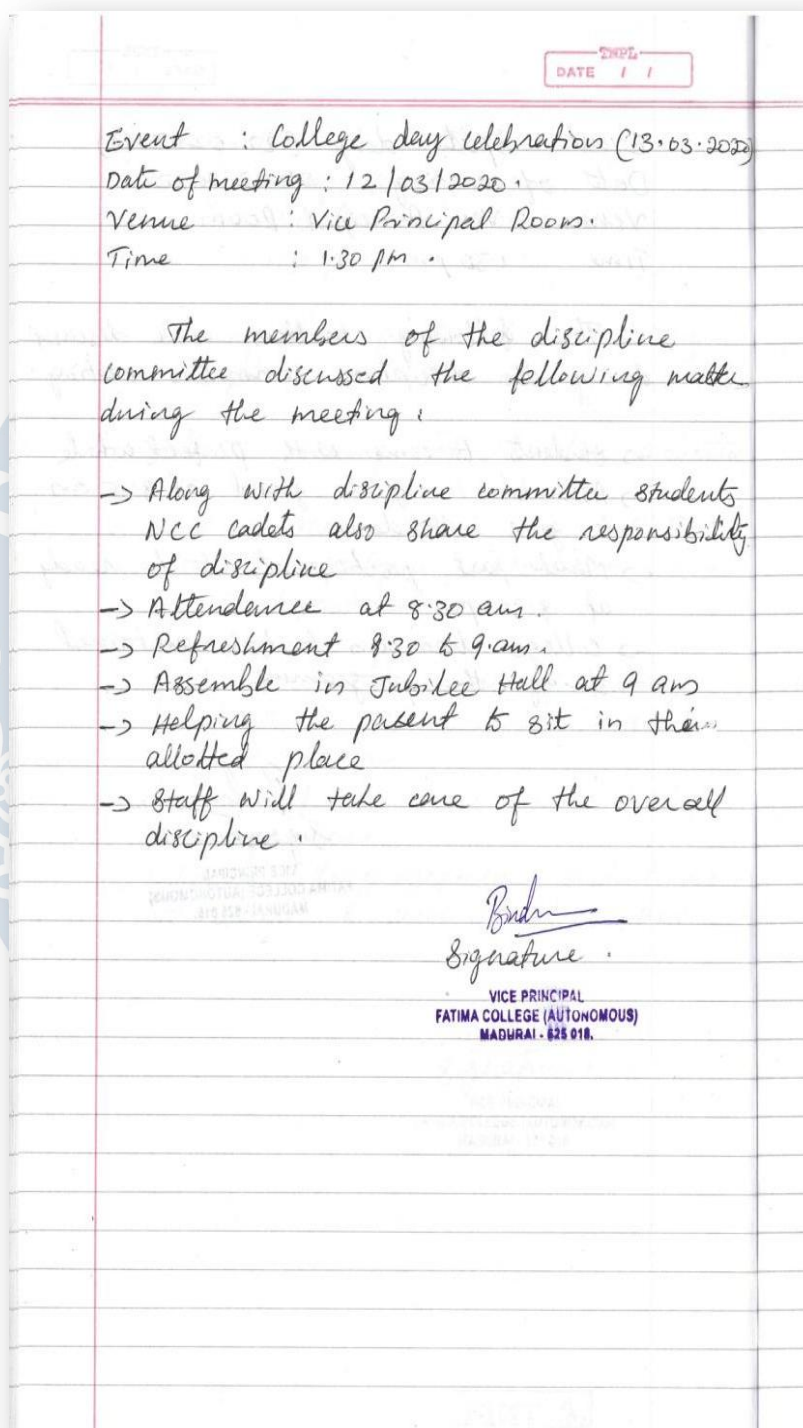 TNPL
DATE / /
Event : College day celebration (13.03.2020)
Date of meeting : 12/03/2020.
Venue : Vice Principal Room.
Time : 1.30 pm.
The members of the discipline
committee discussed the following matter
during the meeting :
-> Along with discipline committee students
NCC cadets also share the responsibility
of discipline
-> Attendance at 8.30 am.
-> Refreshment 8.30 to 9.am.
-> Assemble in Jubilee Hall at 9 am
-> Helping the parent to sit in their
allotted place
-> Staff will take care of the overall
discipline.
Bindu
Signature.
VICE PRINCIPAL
FATIMA COLLEGE (AUTONOMOUS)
MADURAI - 625 018.